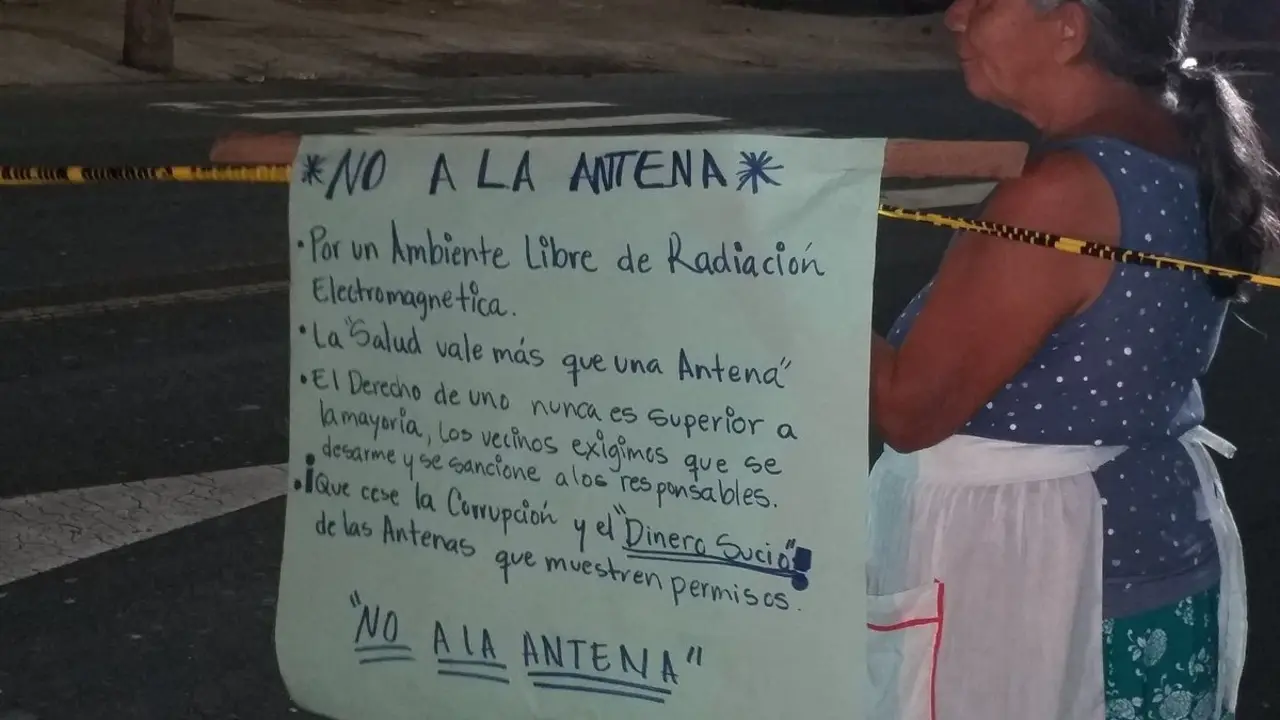 *NO A LA ANTENA*
• Por un Ambiente Libre de Radiación
Electromagnetica.
• La "Salud vale más que una Antena"
• El Derecho de uno nunca es superior a
la mayoría, los vecinos exigimos que se
desarme y se sancione a los responsables.
• ¡Que cese la Corrupción y el "Dinero Sucio"!
de las Antenas que muestren permisos.
"NO A LA ANTENA"